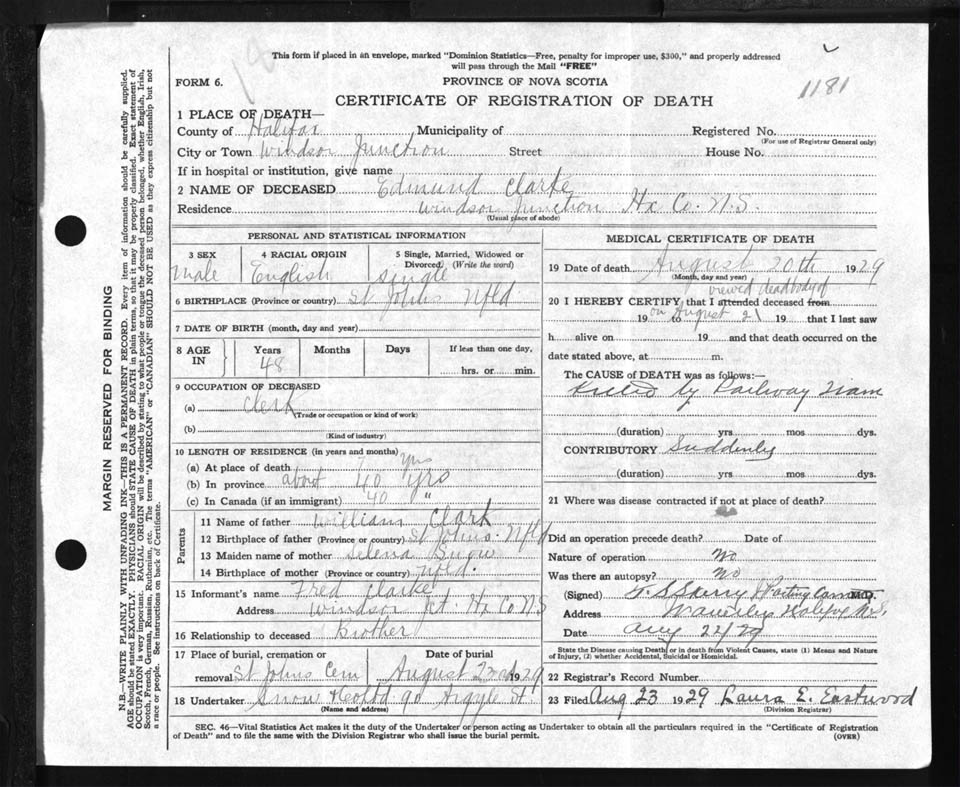 This form if placed in an envelope, marked "Dominion Statistics—Free, penalty for improper use, $300," and properly addressed
will pass through the Mail "FREE"
1181
FORM 6.
PROVINCE OF NOVA SCOTIA
CERTIFICATE OF REGISTRATION OF DEATH
1 PLACE OF DEATH—
County of Halifax Municipality of Registered No.
(For use of Registrar General only)
City or Town Windsor Junction Street House No.
If in hospital or institution, give name
2 NAME OF DECEASED Edmund Clarke
Residence Windsor Junction Hx Co. N.S.
(Usual place of abode)
PERSONAL AND STATISTICAL INFORMATION
3 SEX 4 RACIAL ORIGIN 5 Single, Married, Widowed or
Divorced. (Write the word)
Male English Single
6 BIRTHPLACE (Province or country) St Johns Nfld.
7 DATE OF BIRTH (month, day and year)
8 AGE IN Years Months Days If less than one day,
48 hrs. or min.
9 OCCUPATION OF DECEASED
(a) Clerk
(Trade or occupation or kind of work)
(b)
(Kind of industry)
10 LENGTH OF RESIDENCE (in years and months)
(a) At place of death 7 yrs
(b) In province about 40 yrs
(c) In Canada (if an immigrant) 40 "
Parents
11 Name of father William Clark
12 Birthplace of father (Province or country) St Johns. Nfld
13 Maiden name of mother Selena Snow
14 Birthplace of mother (Province or country) Nfld.
15 Informant's name Fred Clarke
Address Windsor Jct. Hx Co N.S
16 Relationship to deceased Brother
17 Place of burial, cremation or Date of burial
removal St Johns Cem August 23rd 1929
18 Undertaker Snow & Co Ltd 90 Argyle St
(Name and address)
MEDICAL CERTIFICATE OF DEATH
19 Date of death August 20th 1929
(Month, day and year)
viewed dead body of
20 I HEREBY CERTIFY that I attended deceased from
19 on to August 21 19 that I last saw
h alive on 19 and that death occurred on the
date stated above, at m.
The CAUSE OF DEATH was as follows:—
Killed by Railway Train
(duration) yrs mos dys.
CONTRIBUTORY Suddenly
(duration) yrs mos dys.
21 Where was disease contracted if not at place of death?
Did an operation precede death? Date of
Nature of operation No
Was there an autopsy? No
(Signed) M.D.
Address Waverley Halifax N.S.
Date Aug 22/29
State the Disease causing Death, or in death from Violent Causes, state (1) Means and Nature
of Injury, (2) whether Accidental, Suicidal or Homicidal.
22 Registrar's Record Number
23 Filed Aug 23 1929 Laura E. Eastwood
(Division Registrar)
SEC. 46—Vital Statistics Act makes it the duty of the Undertaker or person acting as Undertaker to obtain all the particulars required in the "Certificate of Registration
of Death" and to file the same with the Division Registrar who shall issue the burial permit.
(OVER)
MARGIN RESERVED FOR BINDING
N.B.—WRITE PLAINLY WITH UNFADING INK—THIS IS A PERMANENT RECORD. Every item of information should be carefully supplied.
AGE should be stated EXACTLY. PHYSICIANS should STATE CAUSE OF DEATH in plain terms, so that it may be properly classified. Exact statement of
OCCUPATION is very important. RACIAL ORIGIN will be described by stating to what people or tongue the deceased person belonged, whether English, Irish,
Scotch, French, German, Russian, Ruthenian, etc. The terms "AMERICAN" or "CANADIAN" SHOULD NOT BE USED as they express citizenship but not
a race or people. See instructions on back of Certificate.